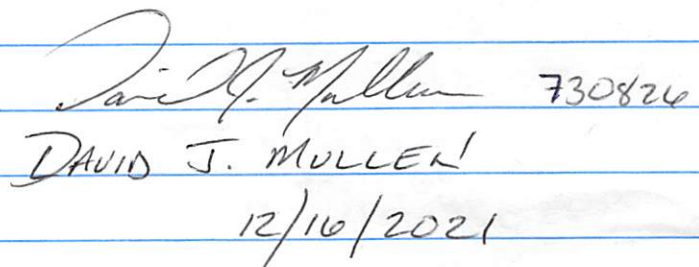 David J. Mullen 730826
DAVID J. MULLEN
12/16/2021